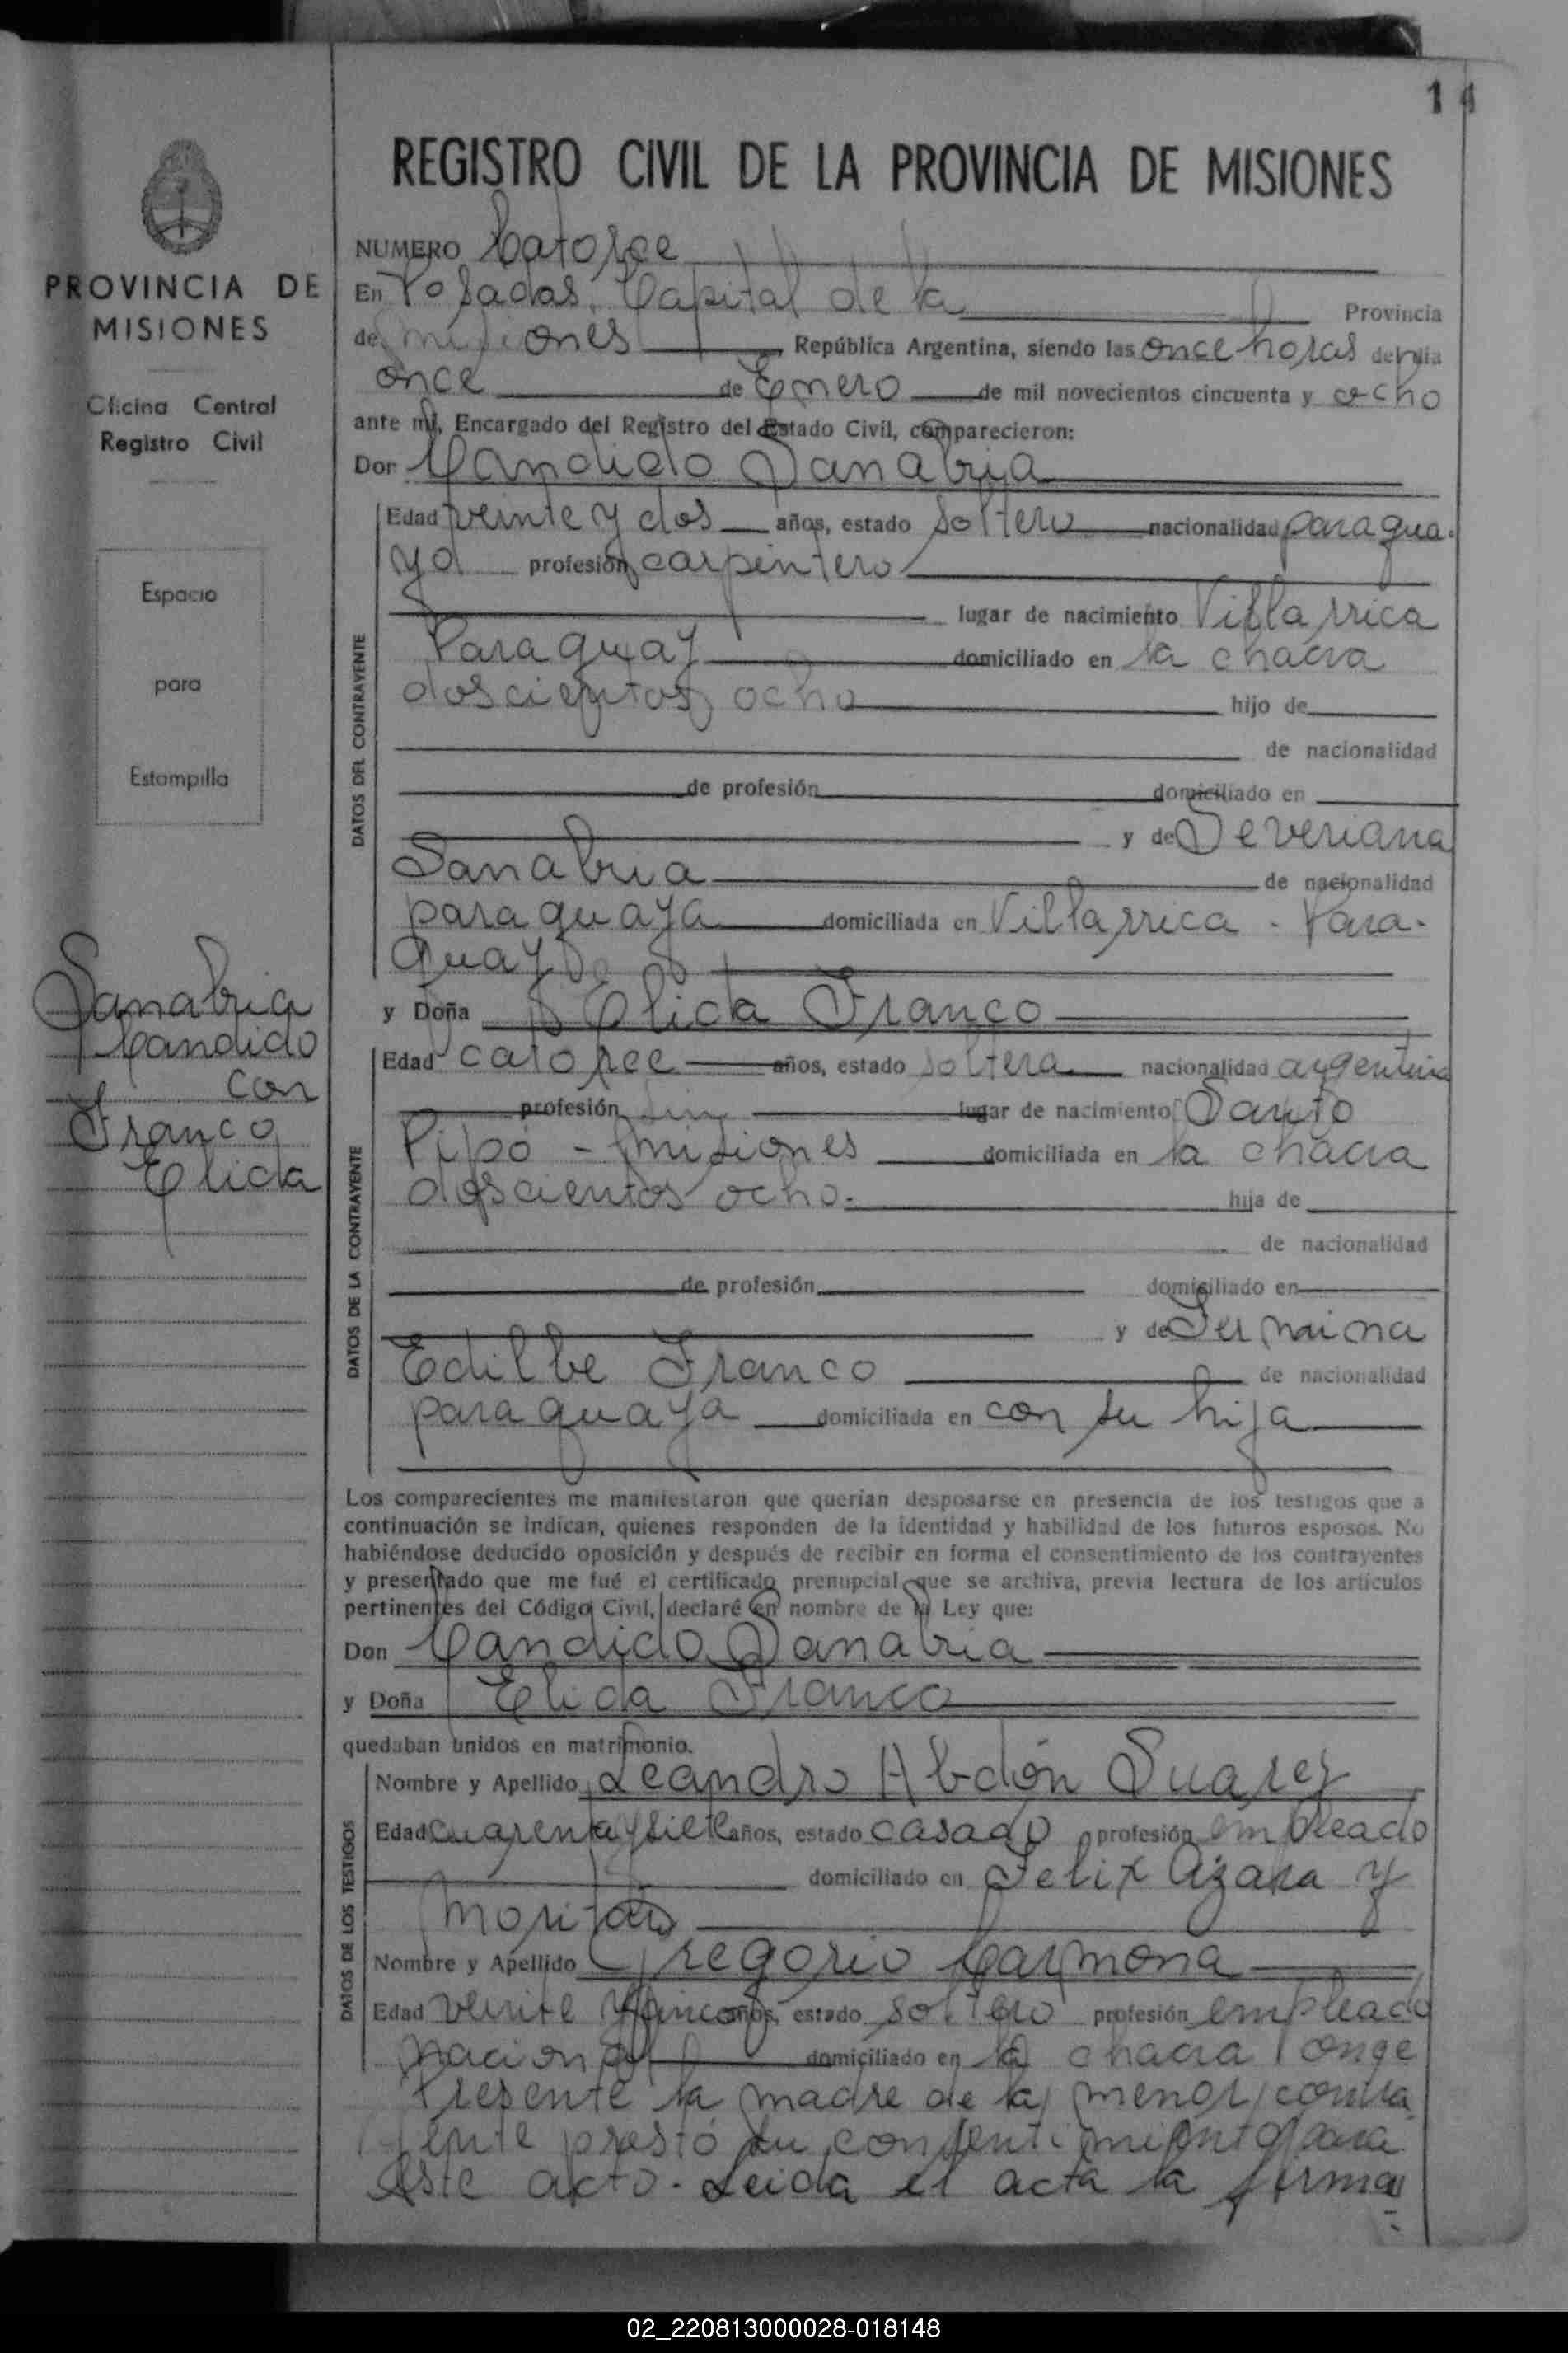 14
REGISTRO CIVIL DE LA PROVINCIA DE MISIONES
PROVINCIA DE
MISIONES
Oficina Central
Registro Civil
Espacio
para
Estampilla
Sanabria
Candido
con
Franco
Elida
NUMERO Catorce
En Posadas, Capital de la Provincia
de misiones República Argentina, siendo las once horas del dia
once de Enero de mil novecientos cincuenta y ocho
ante mí, Encargado del Registro del Estado Civil, comparecieron:
Don Candido Sanabria
DATOS DEL CONTRAYENTE
Edad veinte y dos años, estado soltero nacionalidad paragua-
ya profesión carpintero
lugar de nacimiento Villarrica
Paraguay domiciliado en la chacra
doscientos ocho hijo de
de nacionalidad
de profesión domiciliado en
y de Severiana
Sanabria de nacionalidad
paraguaya domiciliada en Villarrica - Para-
guay
y Doña Elida Franco
DATOS DE LA CONTRAYENTE
Edad catorce años, estado soltera nacionalidad argentina
profesión sin lugar de nacimiento Santo
Pipó - misiones domiciliada en la chacra
doscientos ocho. hija de
de nacionalidad
de profesión domiciliado en
y de Fermina
Edilbe Franco de nacionalidad
paraguaya domiciliada en con su hija
Los comparecientes me manifestaron que querían desposarse en presencia de los testigos que a
continuación se indican, quienes responden de la identidad y habilidad de los futuros esposos. No
habiéndose deducido oposición y después de recibir en forma el consentimiento de los contrayentes
y presentado que me fué el certificado prenupcial que se archiva, previa lectura de los artículos
pertinentes del Código Civil, declaré en nombre de la Ley que:
Don Candido Sanabria
y Doña Elida Franco
quedaban unidos en matrimonio.
DATOS DE LOS TESTIGOS
Nombre y Apellido Leandro Abdón Suarez
Edad cuarenta y siete años, estado casado profesión empleado
domiciliado en Felix Azara y
Nombre y Apellido Gregorio Carmona
Edad veinte y cinco años, estado soltero profesión empleado
nacional domiciliado en la chacra onge
Presente la madre de la menor contra
yente prestó su consentimiento para
este acto. Leida el acta la firma
02_220813000028-018148